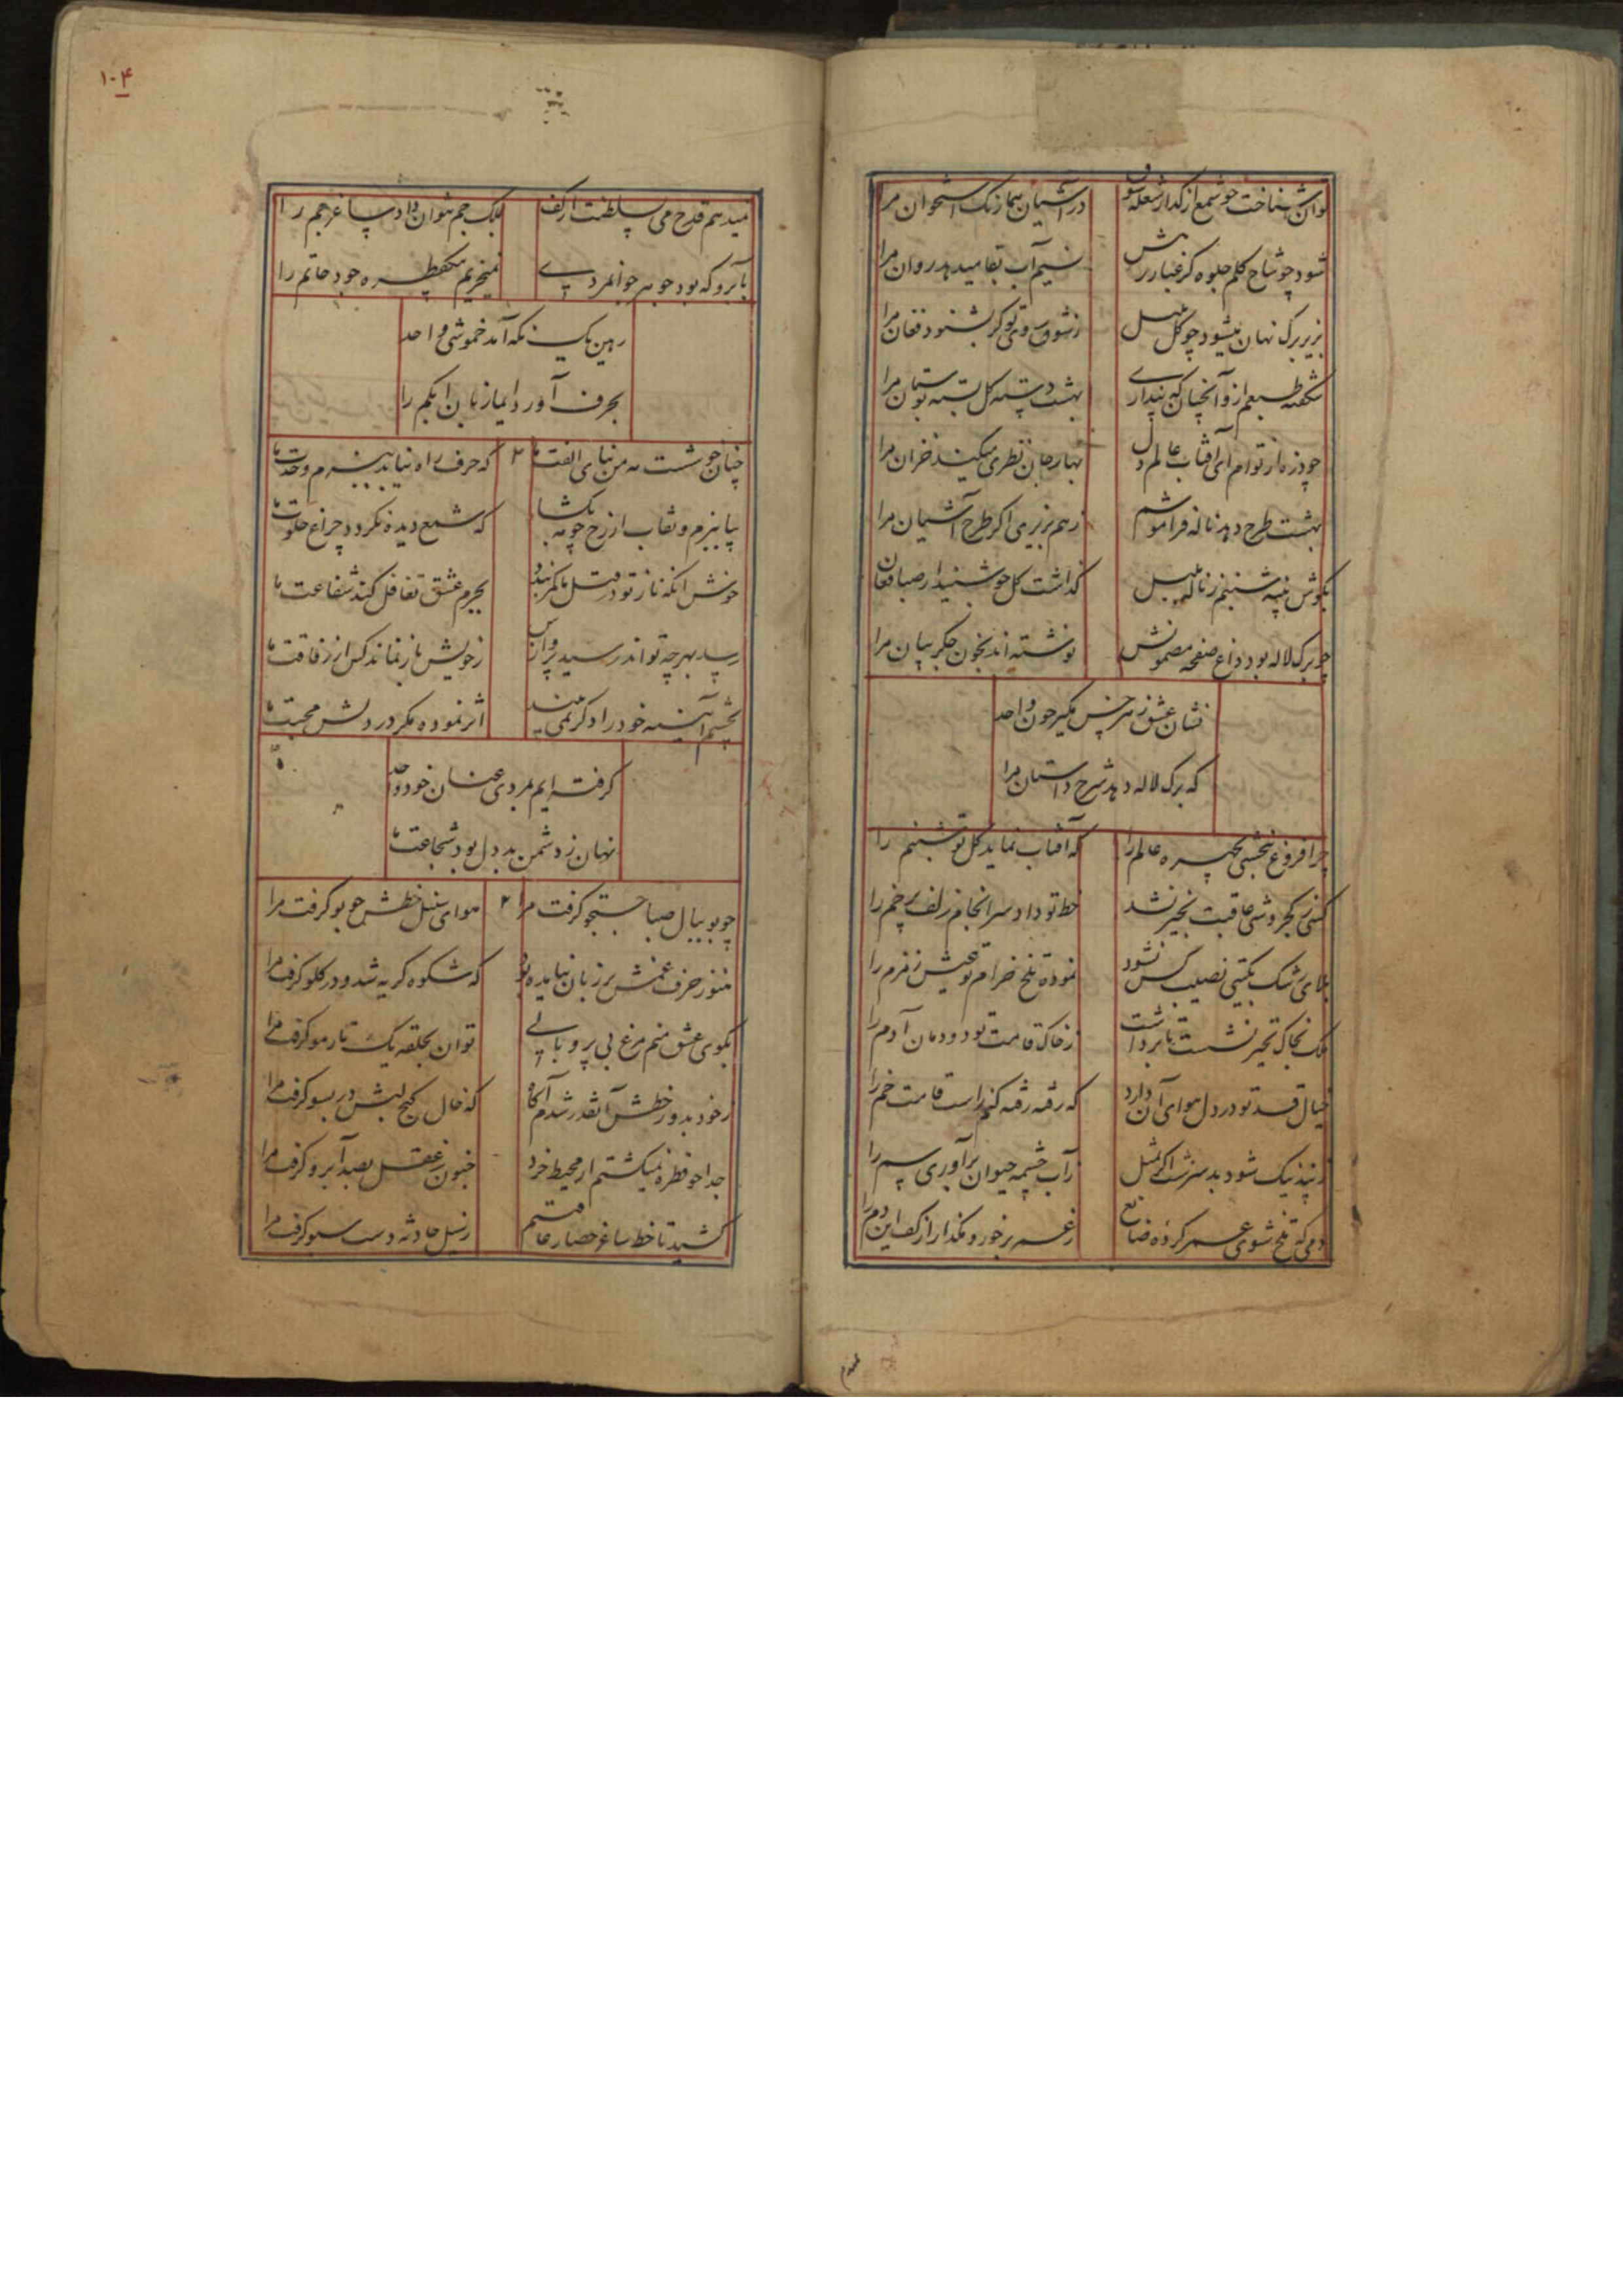 توان شناخت چو شمع از گداز شعله شوق
در آشیان هما رنگ استخوان مرا
شود چو شاخ گلم جلوه گر غبار رهش
نسیم آب بقا میدهد روان مرا
بزیر برگ نهان میشود چو گل بلبل
ز شوق روی تو گر بشنود فغان مرا
شکفته طبعم ازو آنچنان که پنداری
بهشت دسته گل بسته بوستان مرا
چو ذره از توام ای آفتاب عالم دل
بهار جان نظری میکند خزان مرا
بهشت طرح دهد ناله فراموشم
ز هم بریزی اگر طرح آشیان مرا
بگوش پنبه شبنم ز ناله بلبل
گذاشت گل چو شنید از صبا فغان مرا
چو برگ لاله بود داغ صفحه مضمونش
نوشته اند بخون جگر بیان مرا
نشان عشق ز هر خس مگیر چون واحد
که برگ لاله دهد شرح داستان مرا
چرا فروغ نبخشی بچهره عالم را
که آفتاب نماید گل تو شبنم را
کسی بکجروشی عاقبت بخیر نشد
خط تو داد سرانجام زلف پرخم را
بلای رشک بگیتی نصیب کس نشود
نموده تلخ خرام تو عیش زمزم را
ملک بخاک تحیر نشست تا برداشت
ز خاک قامت تو دودمان آدم را
خیال قد تو در دل هوای آن دارد
که رفته رفته کند راست قامت خم را
ز پند نیک شود بد سرشت اگر بمثل
ز آب چشمه حیوان برآوری سم را
دمی که تلخ شوی عمر کرده ضایع
ز عمر برخور و مگذار از کف این دم را
۱۰۴
میدهم قدح می سلطنت از کف
بملک جم نتوان داد ساغر جم را
بآبرو که بود جوهر جوانمردی
نمیخریم بیکقطره جود حاتم را
رهین یک نگه آمد خموشی واحد
بحرف آورد ایما زبان ابکم را
چنان خوشست به من بنای الفت ما
۲
که حرف راه نیابد ببزم وحدت ما
بیا ببزم و نقاب از رخ چو مه بگشا
که شمع دیده نگردد چراغ خلوت ما
خوش آنکه ناز تو در قتل ما کمر بندد
بجرم عشق تغافل کند شفاعت ما
رسد بهر چه تواند رسید پروازش
ز خویش باز نماند کس از رفاقت ما
بچشم آینه خود را دگر نمی بیند
اثر نموده مگر در دلش محبت ما
گرفته ایم بمردی عنان خود واحد
نهان ز دشمن بد دل بود شجاعت ما
چو بو ببال صبا جستجو گرفت مرا
۲
هوای سنبل خطش چو بو گرفت مرا
هنوز حرف غمش بر زبان نیامده بود
که شکوه گریه شد و در گلو گرفت مرا
بکوی عشق منم مرغ بی پر و بالی
توان بحلقه یک تار مو گرفت مرا
ز خود بدور خطش آنقدر شدم آگاه
که خال کنج لبش در بسو گرفت مرا
جدا چو قطره نمیگشتم از محیط خرد
جنون ز عقل بصد آبرو گرفت مرا
کشید تا خط ساغر حصار عافیتم
ز سیل حادثه دست سبو گرفت مرا